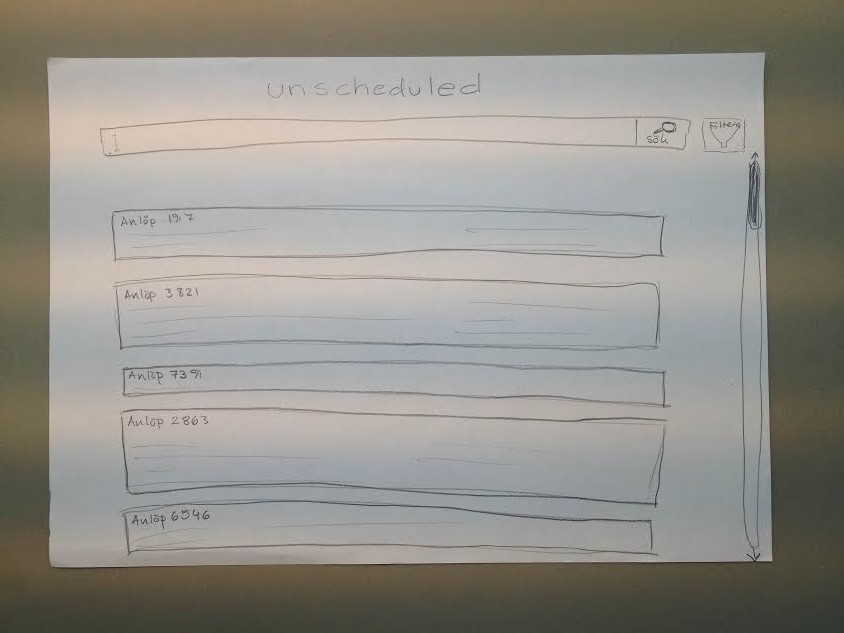 unscheduled
sök
Filtera
Anlöp 1917
Anlöp 3821
Anlöp 7391
Anlöp 2863
Anlöp 6546